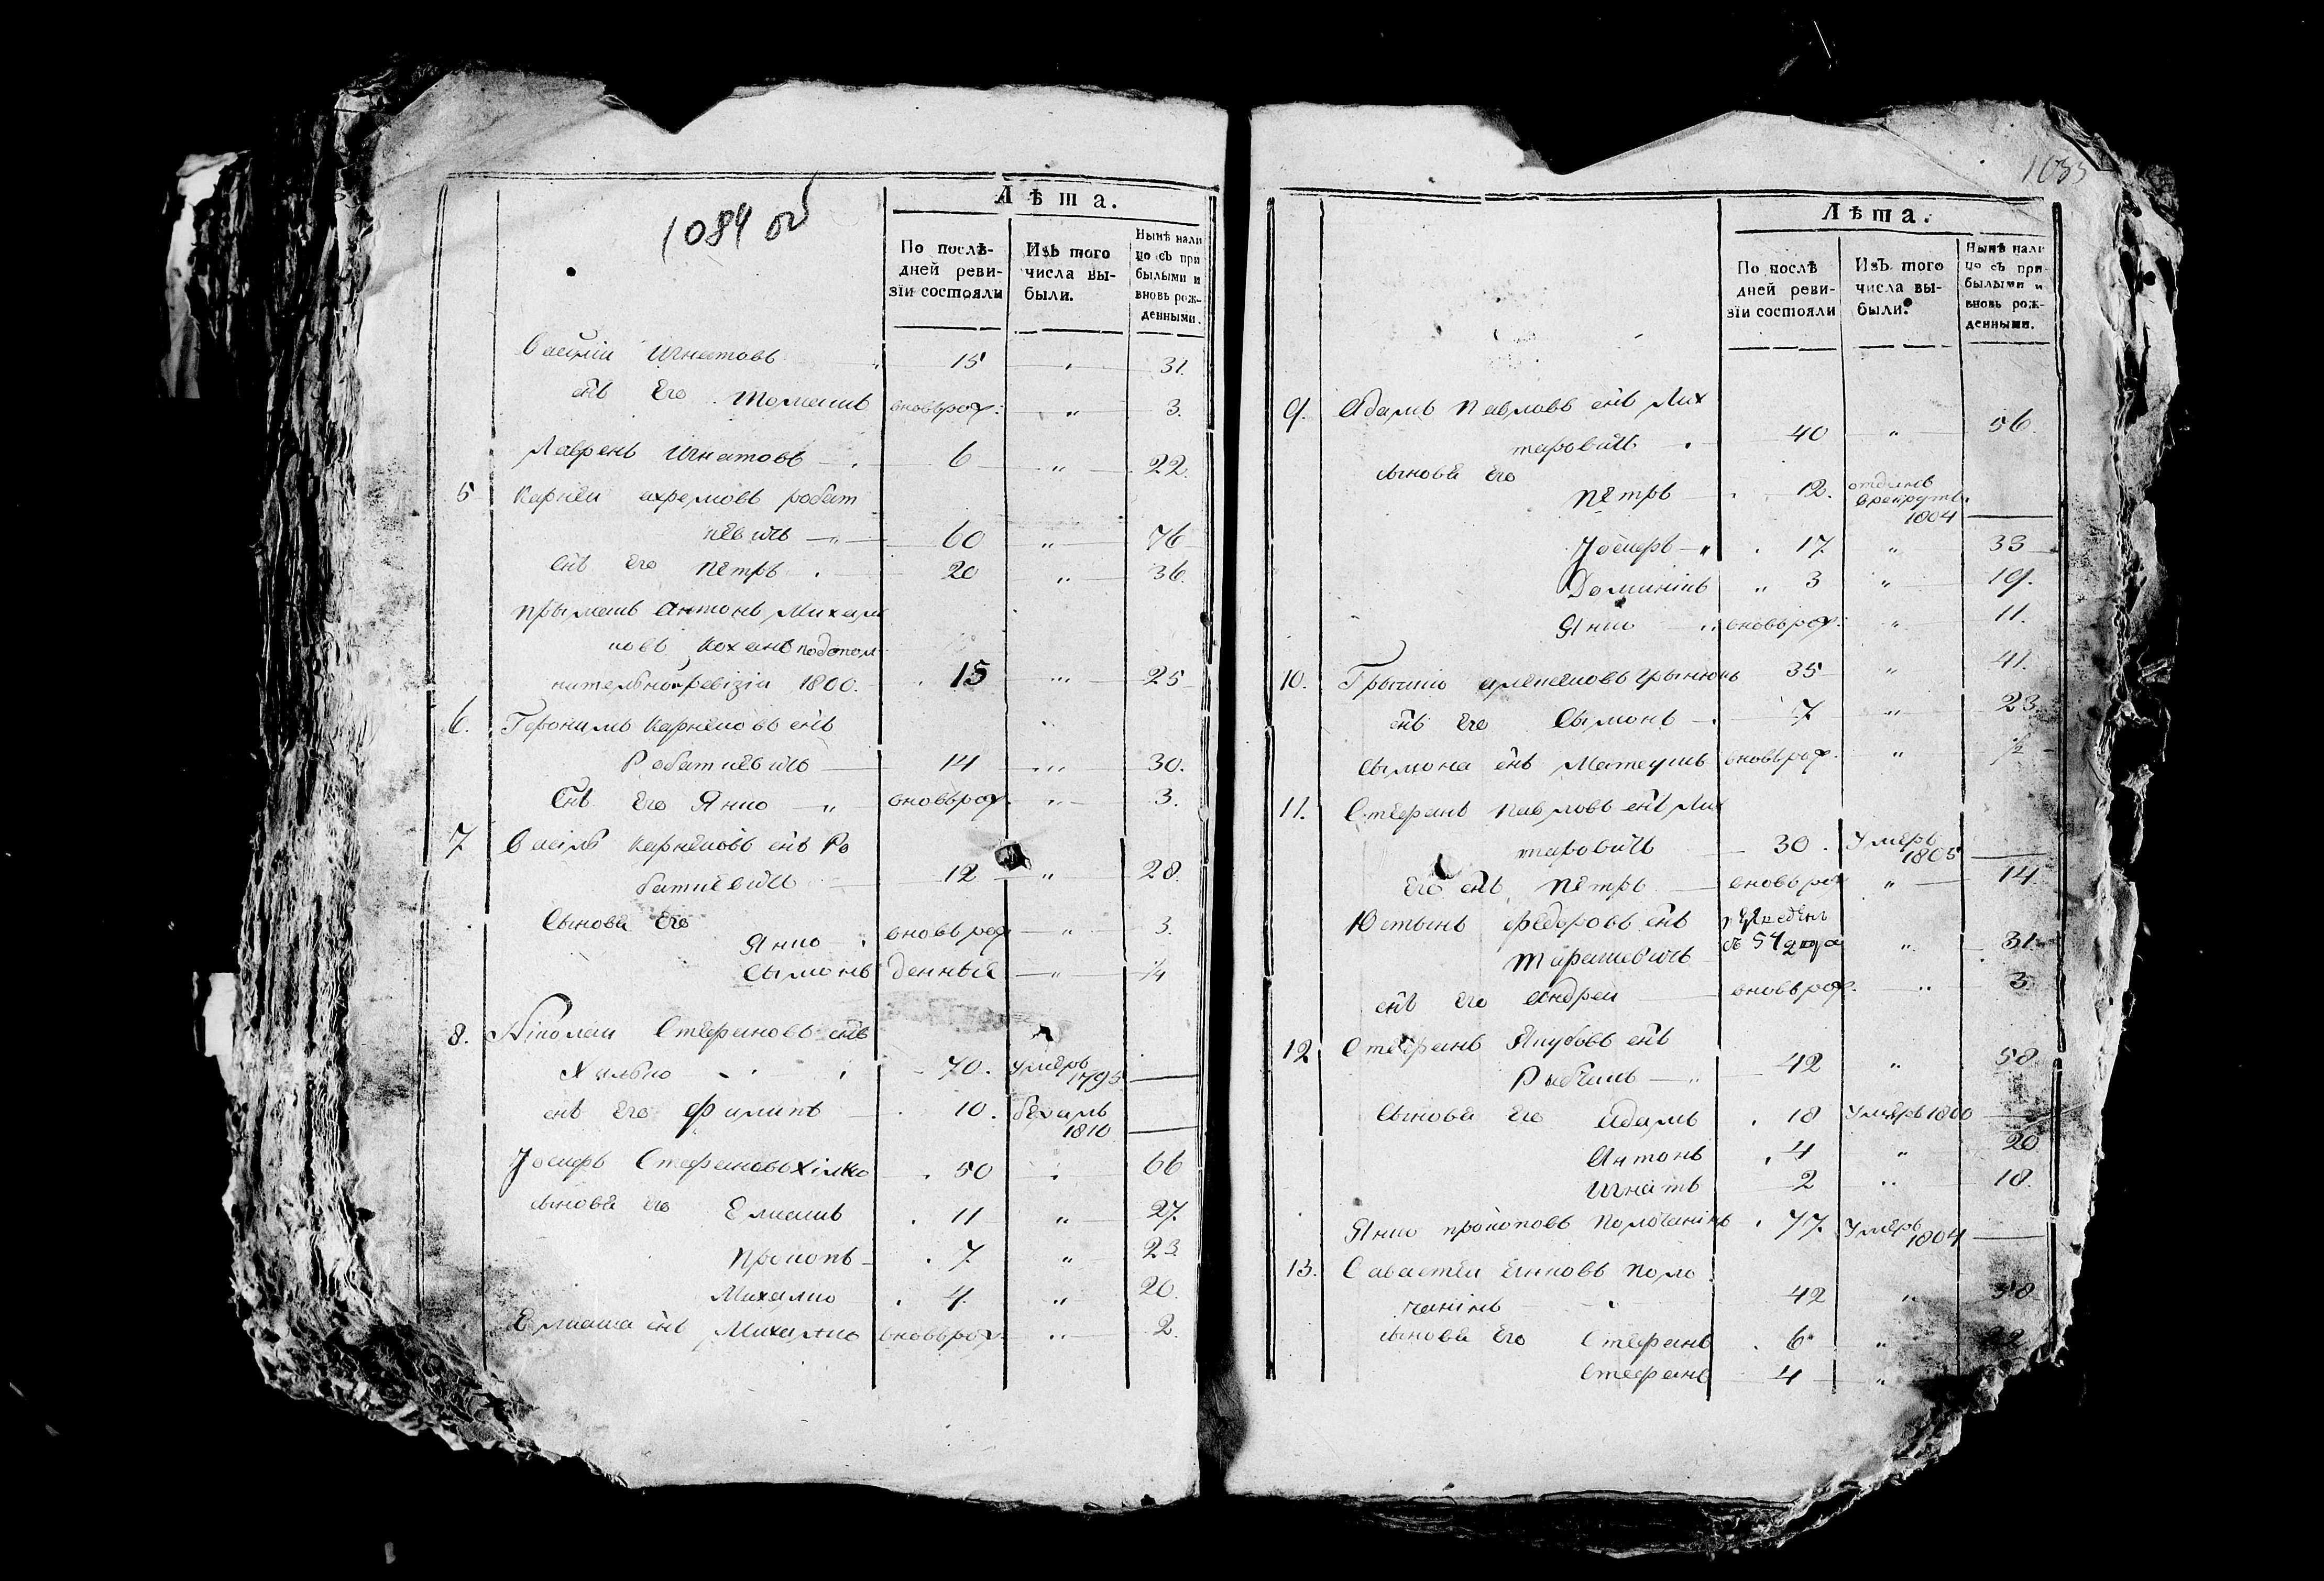 1084 об
Лѣта.
По послѣ-
дней реви-
зіи состояли
Изъ того
числа вы-
были.
Нынѣ нали
цо съ при
былыми и
вновь рож-
денными.
Василій Игнатовъ 15 " 31.
снъ Его Томашъ вновьрож: " 3.
Лаврень Игнатовъ 6 " 22.
5 Карней ахремовъ робат
кевичь 60 " 76
Снъ Его Петръ 20 " 36.
Прымашъ Антонъ Михал
ковъ Коханъ подопол
нительной ревізіи 1800. 15 " 25
6. Геронимъ Карнеіовъ снъ
Робаткевичь 14 " 30.
Снъ Его Янко " вновьрож. " 3.
7 Васіль Карнеіовъ снъ Ро
баткевичь 12 " 28.
Сынове Его
Янко вновьрож " 3.
Сымонъ денные " ¼
8. Ніколай Стефановъ снъ
Хилько 70. Умеръ
1795
снъ Его Филипъ 10. бежалъ
1810
Іосифъ Стефановъ Хілко 50 " 66
сынове его Елиашъ 11 " 27.
Прокопъ 7 " 23
Михалко 4. " 20.
Елиаша снъ Михалко вновьрож " 2.
1085
Лѣта.
По послѣ
дней реви-
зіи состояли
Изъ того
числа вы-
были.
Нынѣ нали
цо съ при-
былыми и
вновь рож-
денными.
9. Адамъ Павловъ снъ Лих
таровичь 40 " 56.
сынове Его
Петръ 12. отданъ
врекруты
1804
Іосифъ 17 " 33
Доминікъ " 3 " 19.
Янко вновьрож: " 11.
10. Грышко Алексеіовъ Грынюкъ 35 " 41.
снъ Его Сымонъ 7 " 23.
Сымона снъ Матеушъ вновьрож. " ½
11. Стефанъ Павловъ снъ Лих
таровичь 30. Умеръ
1805
Его снъ Петръ вновьрож " 14
Юстынъ Федоровъ снъ
Тарашевичь " 31.
снъ Его Андрей вновьрож. " 3.
12 Стефанъ Якубовъ снъ
Рыбчакъ " 42 " 58
Сынове Его Адамъ 18 Умеръ 1800
Антонъ 4 " 20
Игнатъ 2 " 18.
Янко прокоповъ Полочанінъ 77. Умеръ
1804
13. Савастей Ели­новъ Поло
чанінъ 42 " 58
сынове Его Стефанъ 6 " 22
Стефанъ 4 "